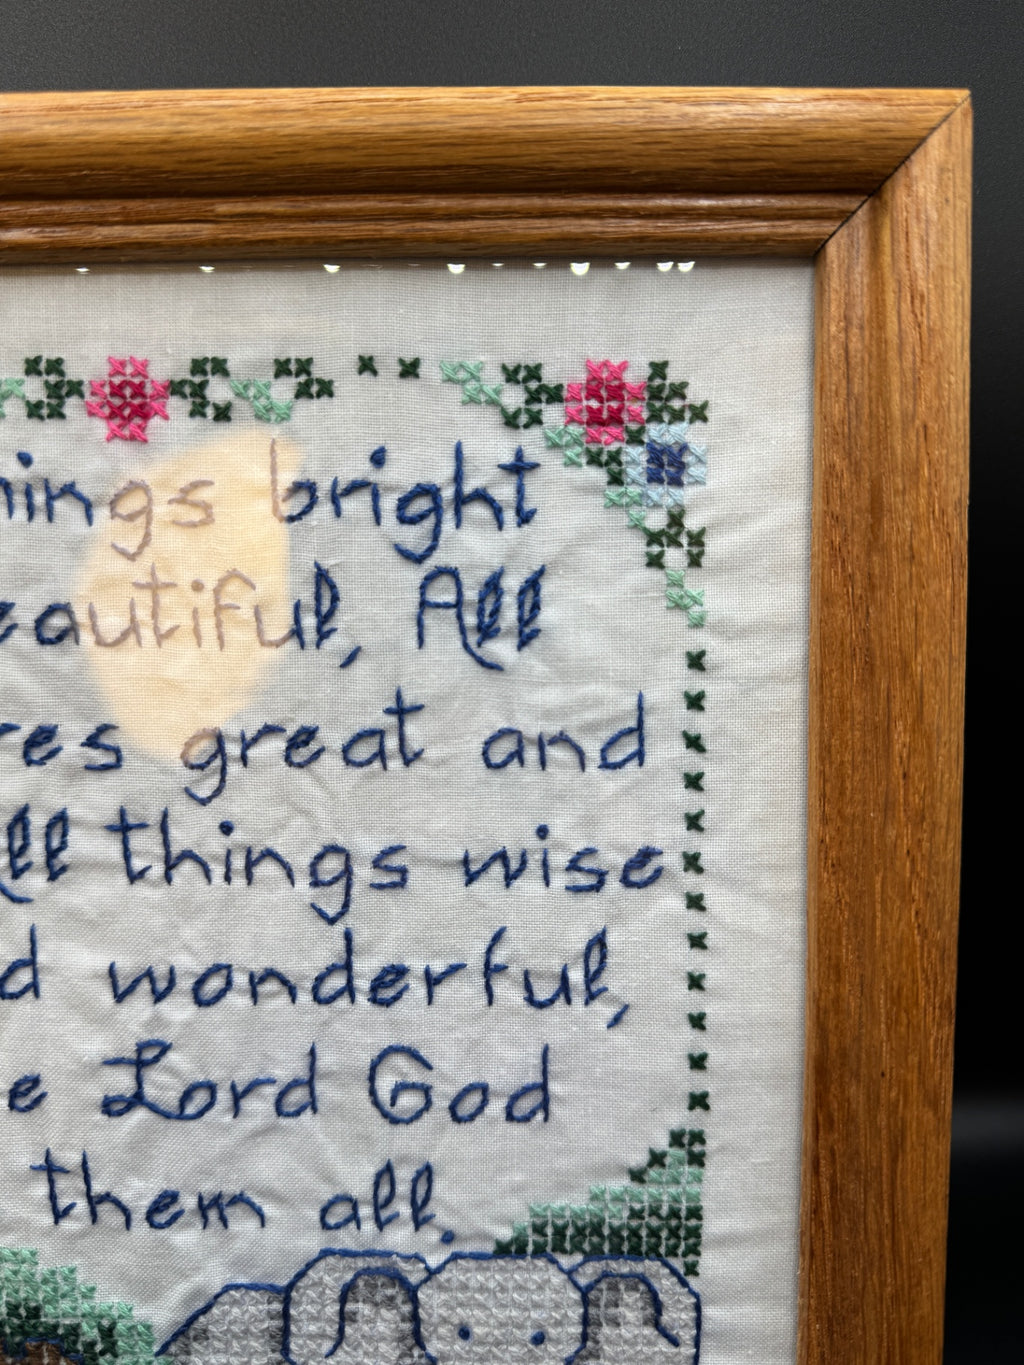 hings bright
eautiful, All
res great and
ll things wise
d wonderful,
e Lord God
them all.